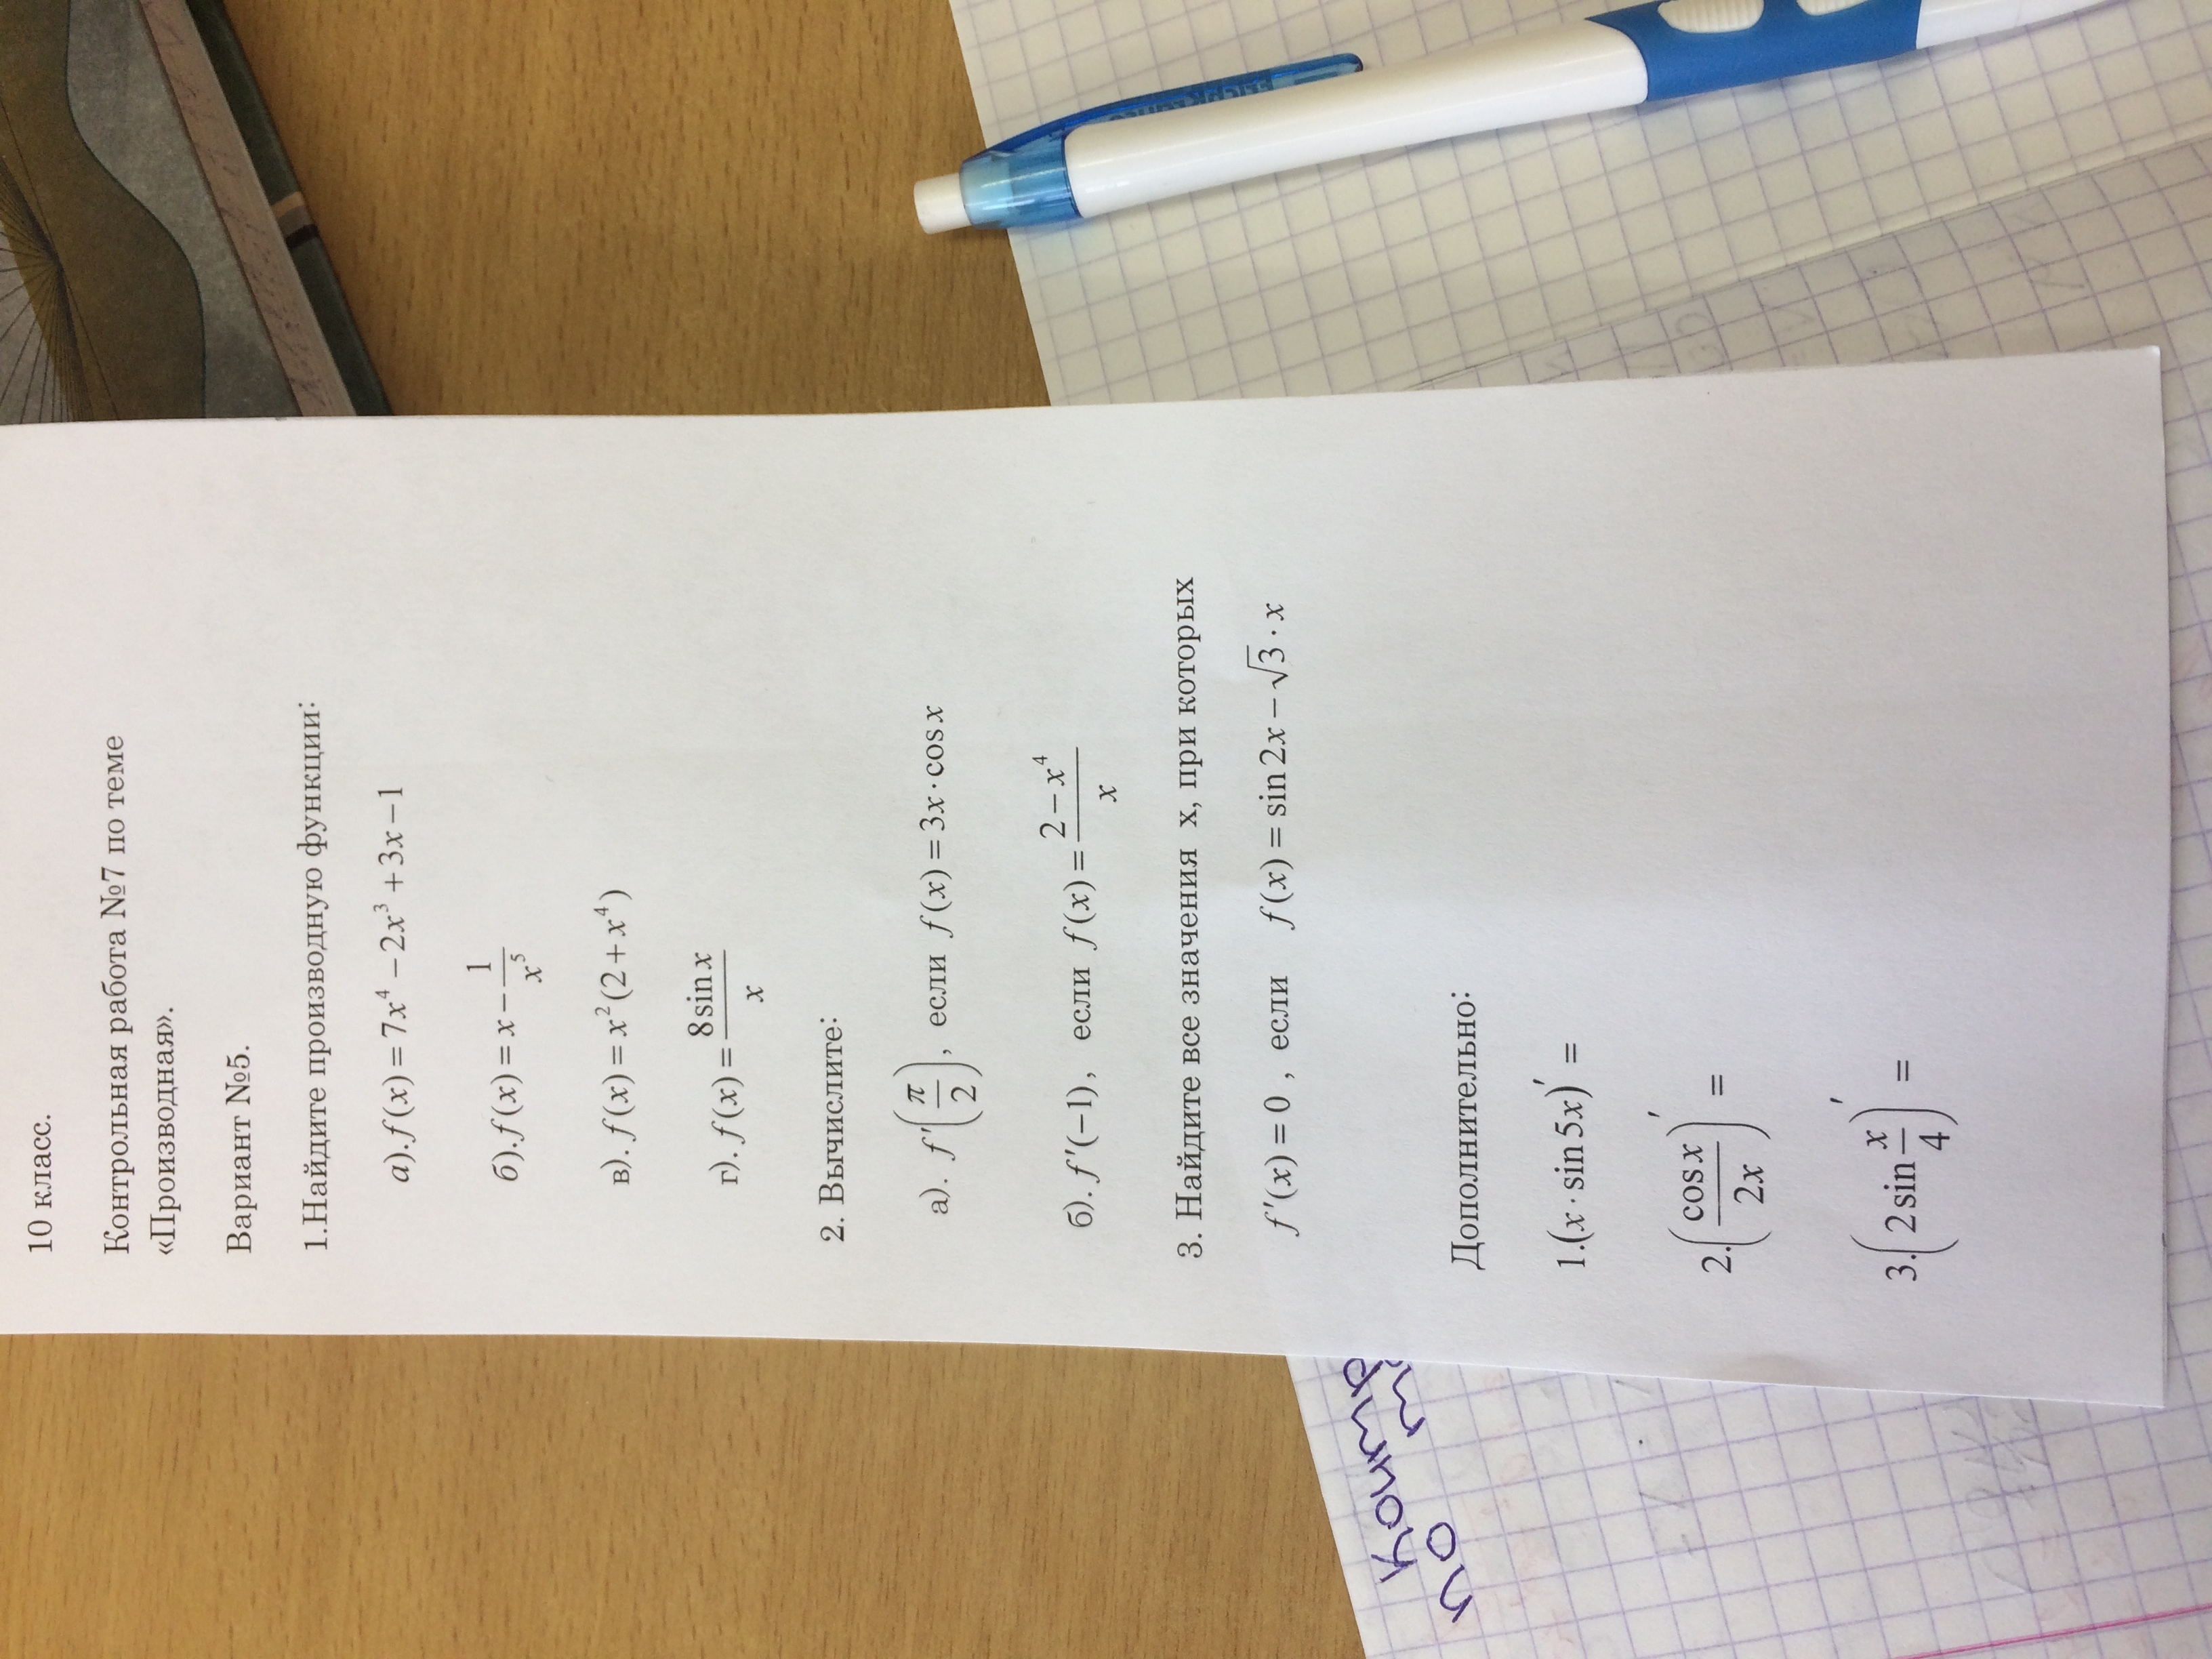 10 класс.
Контрольная работа №7 по теме
«Производная».
Вариант №5.
1.Найдите производную функции:
а).f(x) = 7x⁴ − 2x³ + 3x − 1
б).f(x) = x − 1/x⁵
в). f(x) = x²(2 + x⁴)
г). f(x) = 8 sin x / x
2. Вычислите:
а). f′(π/2), если f(x) = 3x · cos x
б). f′(−1), если f(x) = (2 − x⁴)/x
3. Найдите все значения х, при которых
f′(x) = 0 , если f(x) = sin 2x − √3 · x
Дополнительно:
1.(x · sin 5x)′ =
2.(cos x / 2x)′ =
3.(2 sin x/4)′ =
по